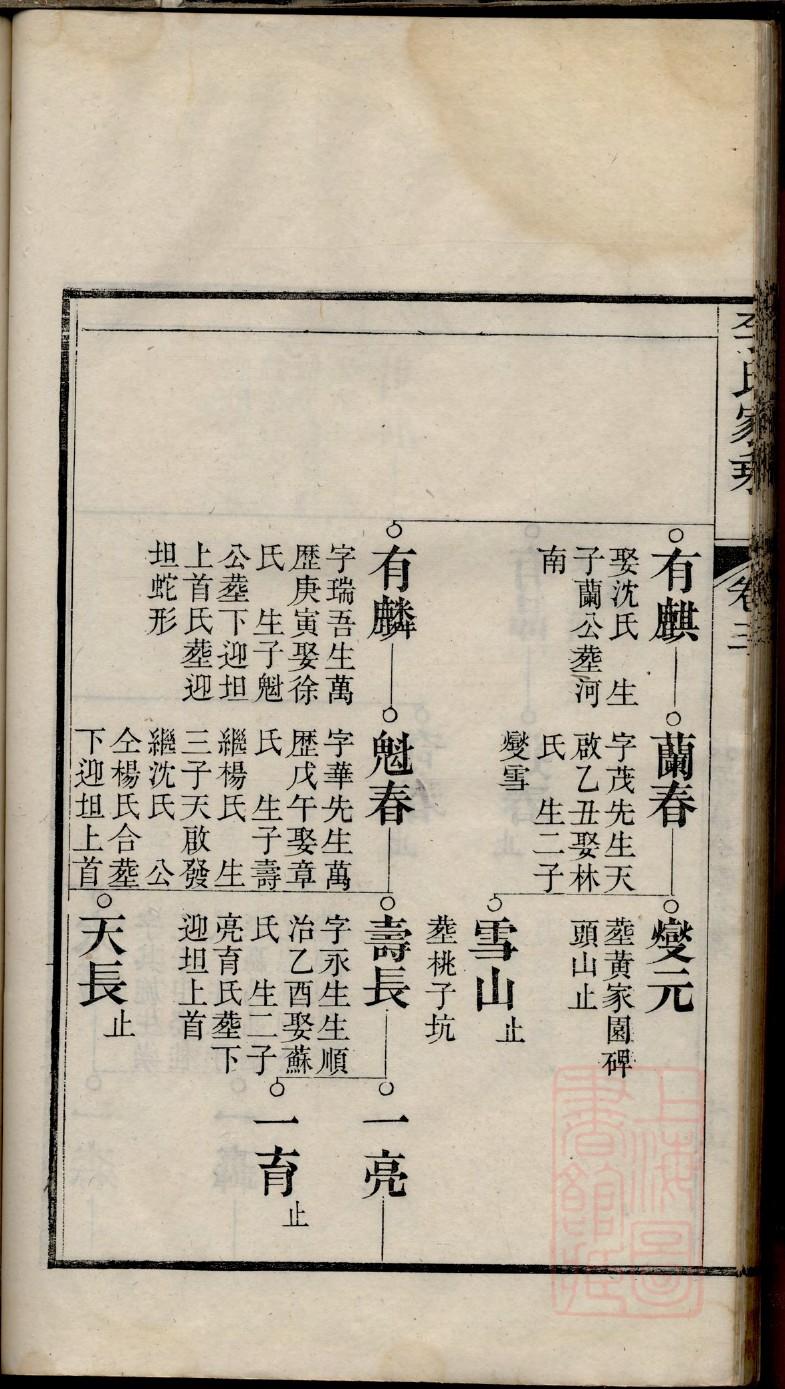 李氏家乘
卷三
有麒
娶沈氏　生
子蘭公塟河
南
蘭春
字茂先生天
啟乙丑娶林
氏　生二子
燮雪
燮元
塟黃家園碑
頭山止
雪山止
塟桃子坑
有麟
字瑞吾生萬
歷庚寅娶徐
氏　生子魁
公塟下迎坦
上首氏塟迎
坦蛇形
魁春
字華先生萬
歷戊午娶章
氏　生子壽
繼楊氏　生
三子天啟發
繼沈氏　公
仝楊氏合塟
下迎坦上首
壽長
字永生生順
治乙酉娶蘇
氏　生二子
亮育氏塟下
迎坦上首
一亮
一育止
天長止
上海圖
書館藏